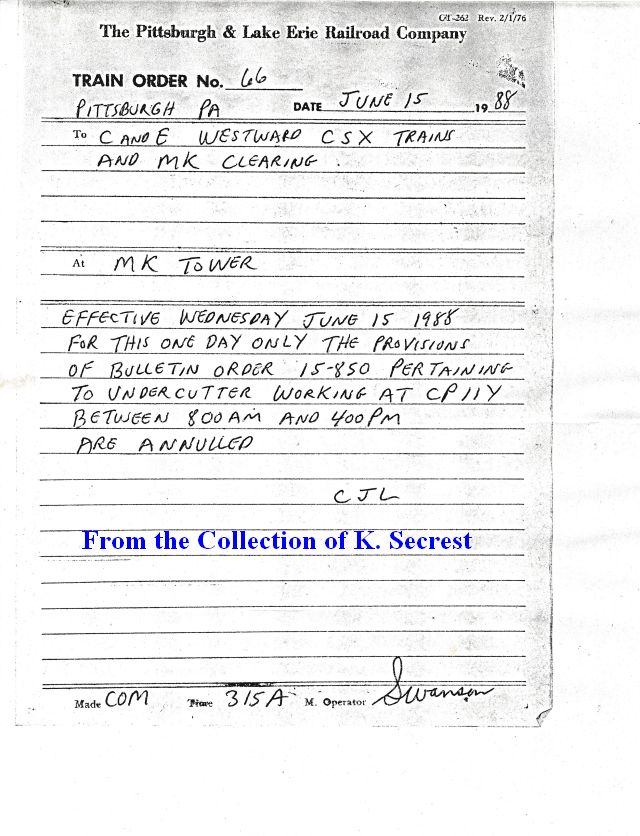 CT-262 Rev. 2/1/76
The Pittsburgh & Lake Erie Railroad Company
TRAIN ORDER No. 66
PITTSBURGH PA DATE JUNE 15 19 88
To C AND E WESTWARD CSX TRAINS
AND MK CLEARING
At MK TOWER
EFFECTIVE WEDNESDAY JUNE 15 1988
FOR THIS ONE DAY ONLY THE PROVISIONS
OF BULLETIN ORDER 15-850 PERTAINING
TO UNDERCUTTER WORKING AT CP 11Y
BETWEEN 800AM AND 400PM
ARE ANNULLED
CJL
From the Collection of K. Secrest
Made COM Time 315A M. Operator Swanson